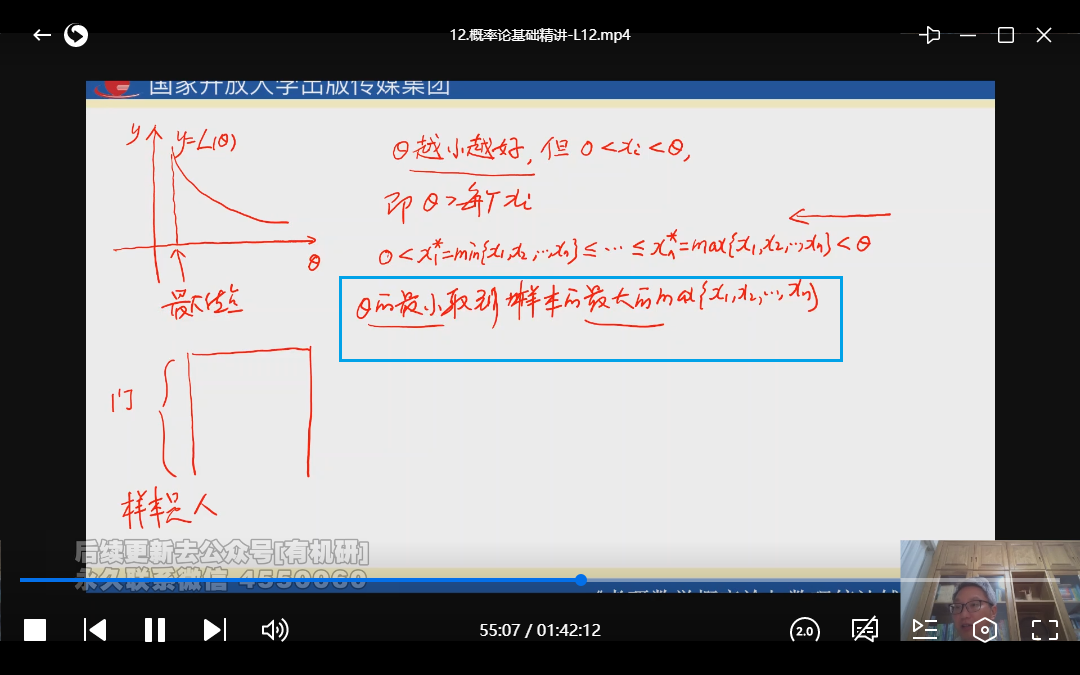 12.概率论基础精讲-L12.mp4
国家开放大学出版传媒集团
y
y=L(θ)
θ
最大值点
θ越小越好,但 0<xi<θ,
即 θ>每个xi
0<x₁*=min{x₁,x₂,…,xₙ}≤…≤xₙ*=max{x₁,x₂,…,xₙ}<θ
θ的最小取到样本的最大的max{x₁,x₂,…,xₙ}
门
样本是人
后续更新去公众号[有机研]
永久联系微信 4550060
55:07 / 01:42:12
2.0